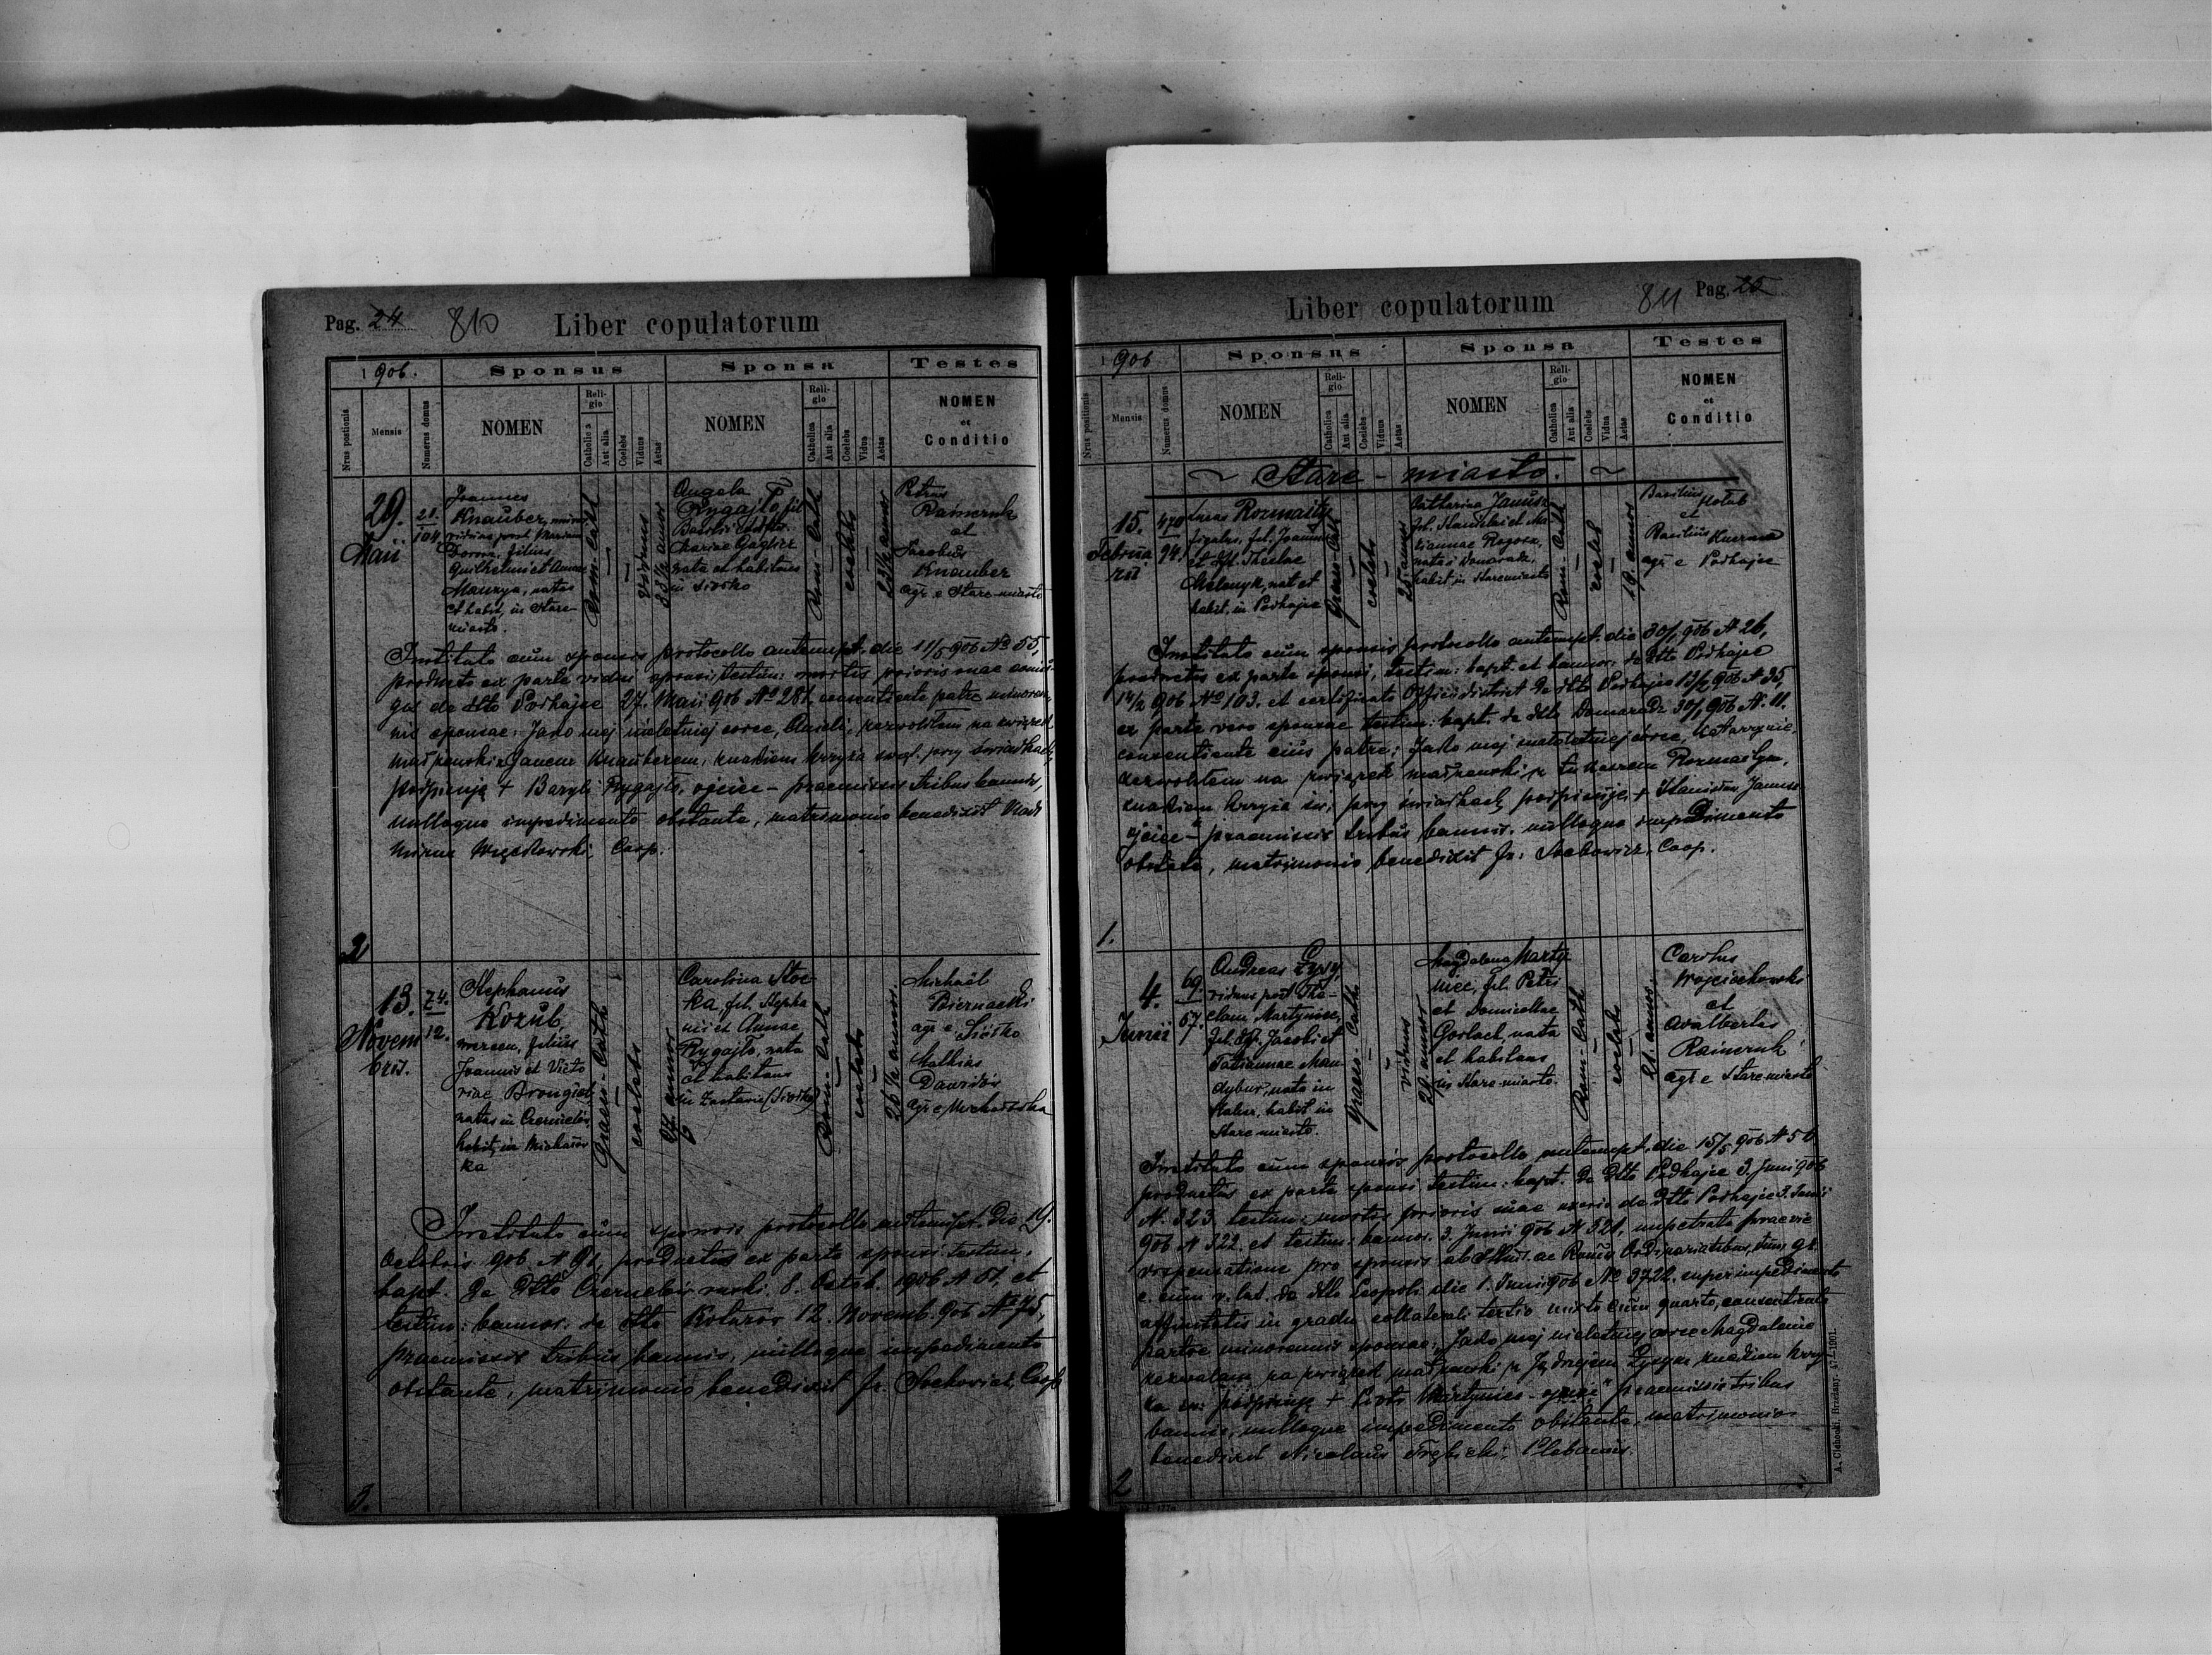 Pag. 24 810 Liber copulatorum
1906.
Sponsus Sponsa Testes
Nrus positionis
Mensis
Numerus domus
NOMEN
Religio
Catholica
Aut alia
Coelebs
Viduus
Aetas
NOMEN
Religio
Catholica
Aut alia
Coelebs
Vidua
Aetas
NOMEN
et
Conditio
29.
Maii
104
Joannes
Knauber,
viduus post Mariam
filius
Guilhelmi et Annae
natus
et habit. in Stare-
miasto.
Rom-Cath
viduus
Angela
Rygajło, fil.
nata et habitans
in Siołko
Rom-Cath
coelebs
Petrus
Rainczuk
et
Jacobus
Knauber
agr. e Stare-miasto
Instituto cum sponsis protocollo antenupt. die 11/5 906 No 55,
producto ex parte vidui sponsi, testim: mortis prioris suae conju-
gis de dtto Podhajce 27. Maii 906 No 281, consentiente patre minoren-
nis sponsae: Jako mej nieletniej córce, Anieli, zezwoliłem na związek
małżeński z Janem Knauberem, znakiem krzyża święt. przy świadkach
podpisuję + Bazyli Rygajło, ojciec - praemissis tribus bannis,
nulloque impedimento obstante, matrimonio benedixit Vladi
mirus Coop.
2
13.
Novem
bris.
74.
12.
Stephanus
Kozub,
filius
Joannis et Victo
riae
natus in
habit. in
ka
Graeco-Cath
coelebs
Carolina Stoc
ka, fil. Stepha
ni et Annae
Rygajło, nata
et habitans
in Zastawie (Siołko)
Rom-Cath
coelebs
Michaël
Biernacki
agr. e Siółko
Mathias
agr. e
Instituto cum sponsis protocollo antenupt. die 19.
Octobris 906 N 91, productis ex parte sponsi testim.
bapt. de dtto 8. Octob. 1906 N 61, et
testim: bannor: de dtto 12. Novemb. 906 No 75,
praemissis tribus bannis, nulloque impedimento
obstante, matrimonio benedixit Fr. Coop
3.
Liber copulatorum 811 Pag. 25
1906
Sponsus Sponsa Testes
Nrus positionis
Mensis
Numerus domus
NOMEN
Religio
Catholica
Aut alia
Coelebs
Viduus
Aetas
NOMEN
Religio
Catholica
Aut alia
Coelebs
Vidua
Aetas
NOMEN
et
Conditio
~ Stare-miasto. ~
15.
Februa
rii
470
94.
Lucas Rozmaity
figulus, fil. Joannis
et Theclae
Melnyk, nat. et
habit. in Podhajce
Graeco-Cath
coelebs
25 annos
Catharina Janusz
fil. Stanislai et Ma
riannae
nata in Domaradz,
habit. in Staremiasto
Rom-Cath
coelebs
19 annos
Basilius
Hołub
et
Basilius
agr. e Podhajce
Instituto cum sponsis protocollo antenupt. die 30/1 906 N 26,
productis ex parte sponsi, testim: bapt. et bannor. de dtto Podhajce
14/2 906 No 103. et certificato Officii district. de dtto Podhajce 13/2 906 N 35
ex parte vero sponsae testim: bapt. de dtto Domaradz 30/1 906 N. 11.
consentiente eius patre: Jako mej małoletniej córce, Katarzynie,
zezwoliłem na związek małżeński z Łukaszem Rozmaitym,
znakiem krzyża św. przy świadkach podpisuję + Stanisław Janusz
ojciec - praemissis tribus bannis, nulloque impedimento
obstante, matrimonio benedixit Fr: Coop.
1.
4.
Junii
69.
67.
Andreas Łysy
viduus post The-
clam Martyniec,
fil. Jacobi et
Tatiannae Man
dybur, nato in
habit. in
Stare miasto.
Graeco-Cath
viduus
29 annos
Magdalena Marty
niec, fil. Petri
et Domicellae
Gorlach, nata
et habitans
in Stare-miasto.
Rom-Cath
coelebs
21 annos.
Carolus
Wojciechowski
et
Adalbertus
Rainczuk
agr. e Stare miasto
Instituto cum sponsis protocollo antenupt. die 15/5 906 N 50
productis ex parte sponsi testim: bapt. de dtto Podhajce 3. Juni 906
N. 323 testim: mortis prioris suae uxoris de dtto Podhajce 3. Junii
906 N 322. et testim: bannor. 3. Junii 906 N 321, impetrata praevie
dispensatione pro sponsis ab Illmis. ac Rmis Ordinariatibus, tum gr.
c. cum r. lat. de dtto Leopoli die 1. Junii 906 No 3722. super impedimento
affinitatis in gradu collaterali tertio mixto cum quarto, consentiente
patre minorennis sponsae: Jako mej nieletniej córce Magdalenie
zezwalam na związek małżeński z Jędrzejem Łysym, znakiem krzy-
ża św. podpisuję + Piotr Martyniec - ojciec" praemissis tribus
bannis, nulloque impedimento obstante, matrimonio
benedixit Nicolaus Plebanus.
2
A. Cichocki, Brzeżany. 47—1901.